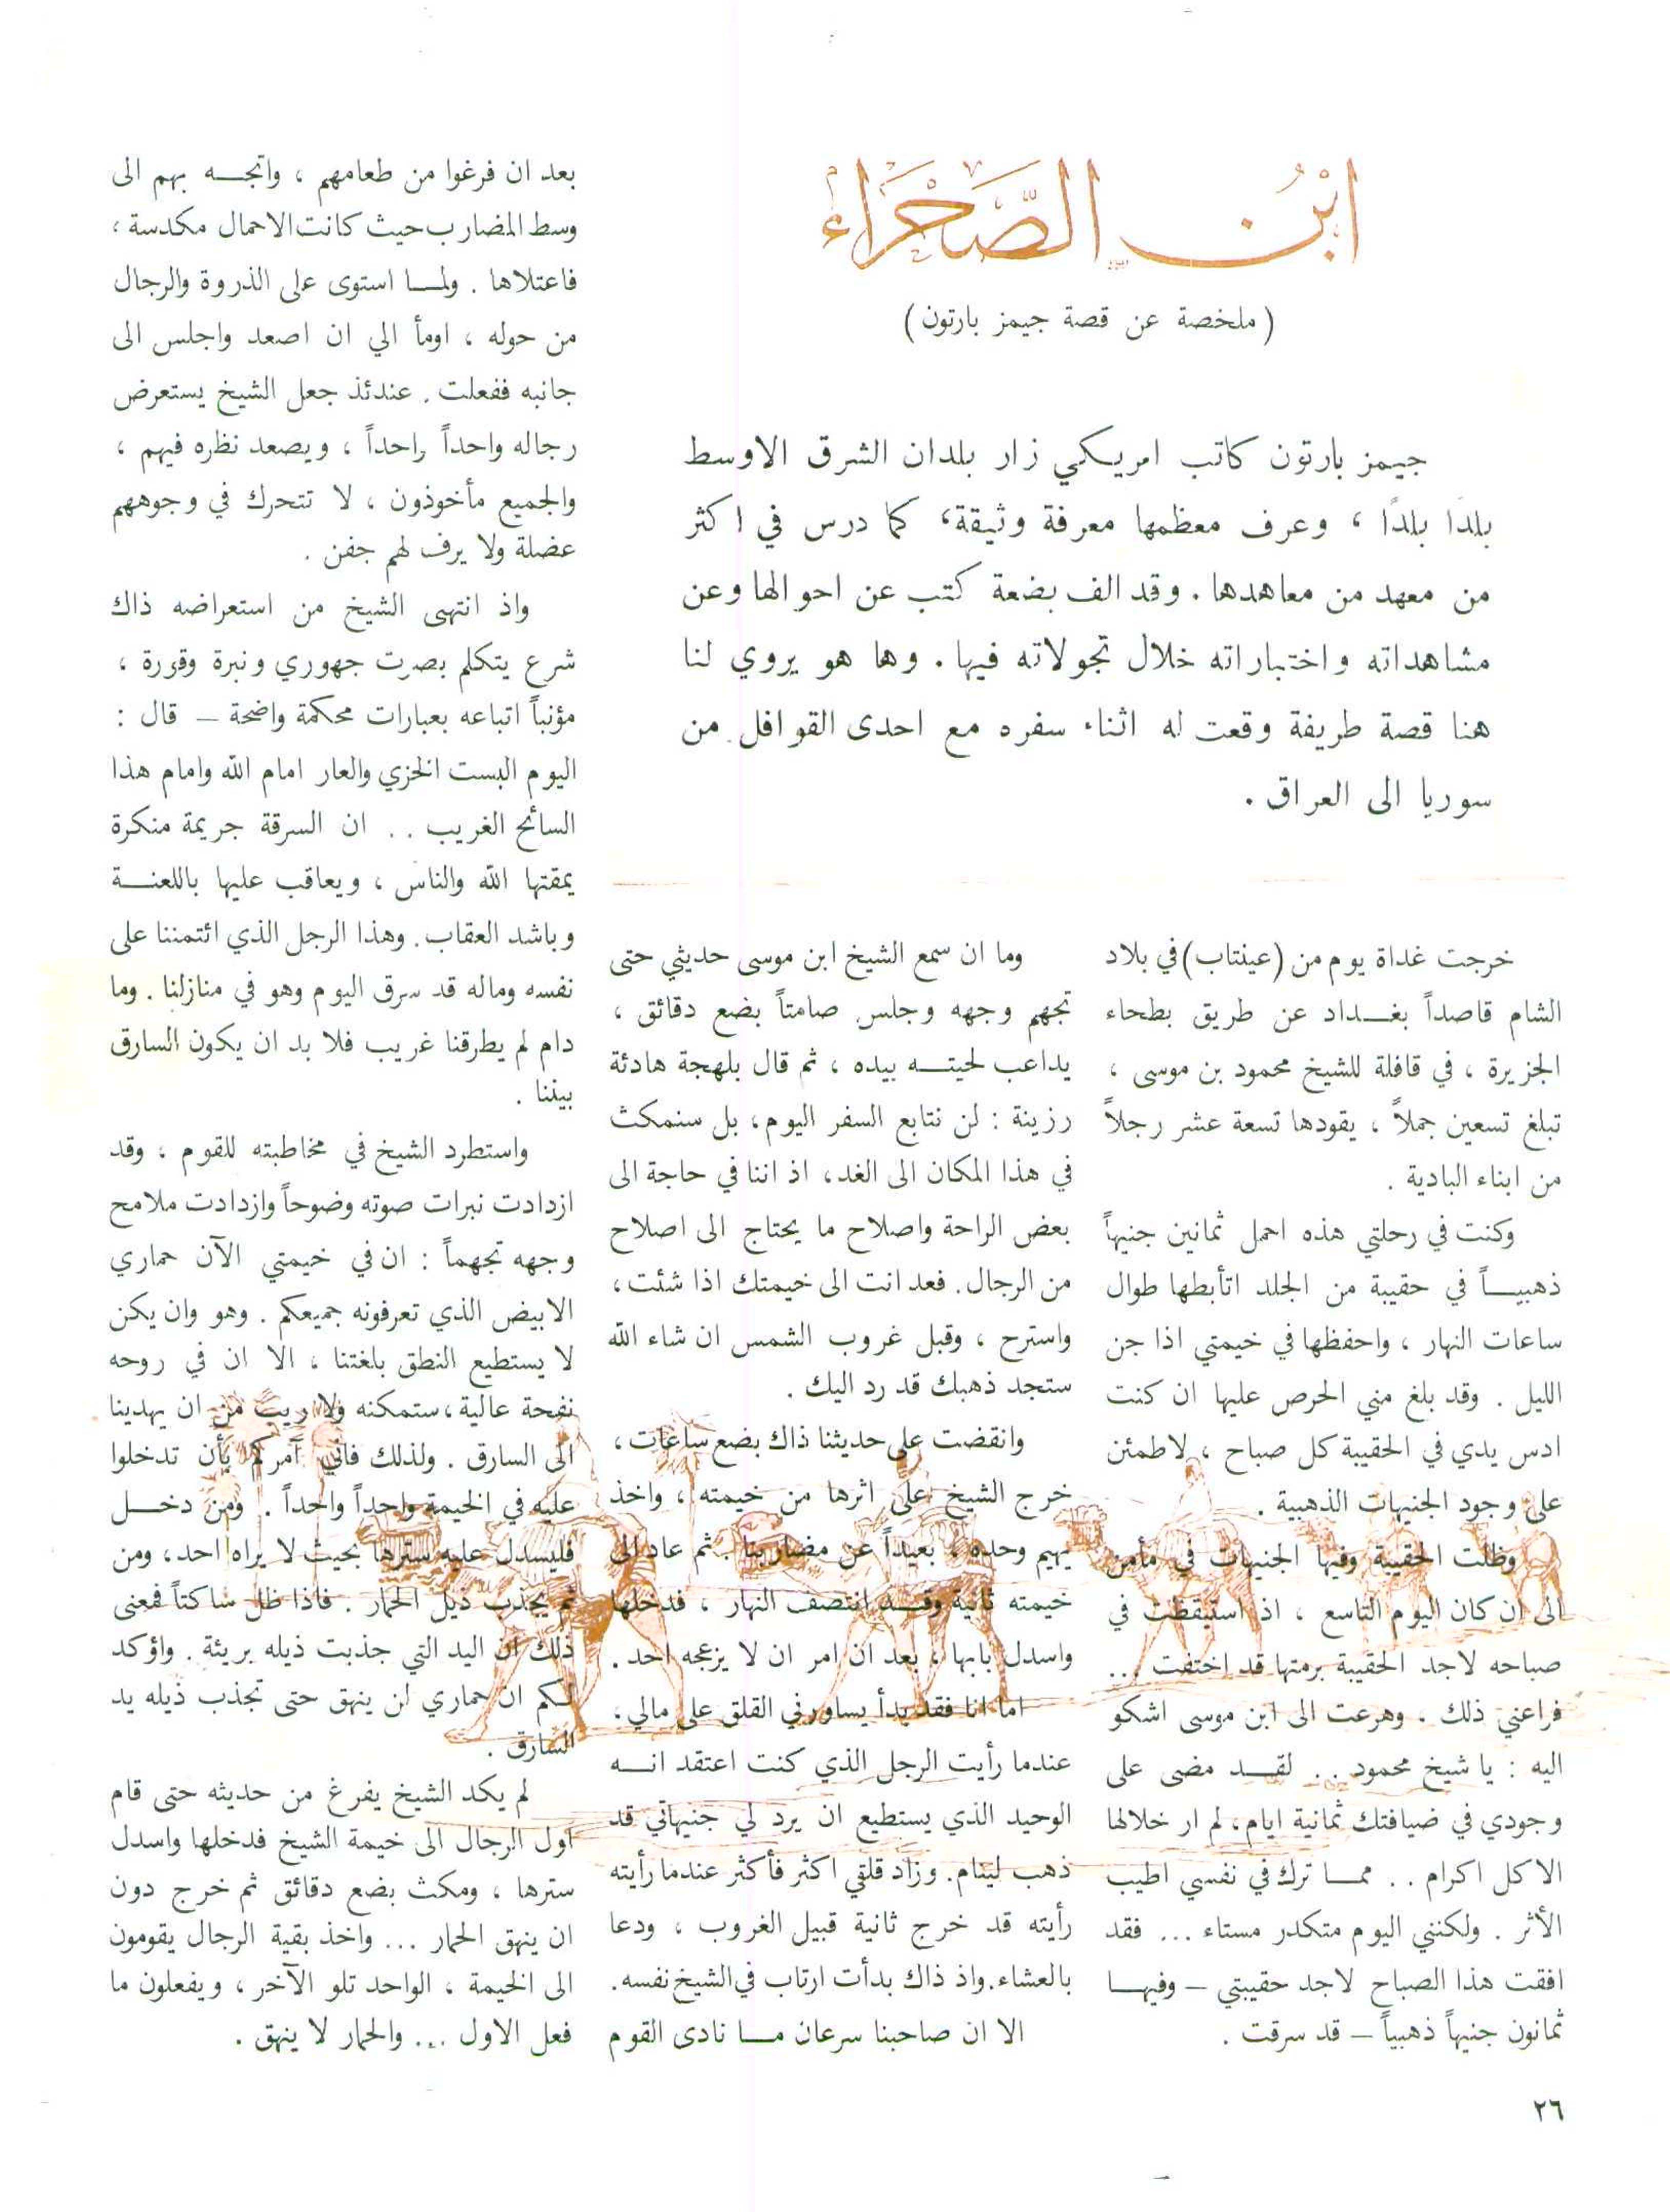 ابْنُ الصَّحْرَاءِ
(ملخصة عن قصة جيمز بارتون)
جيمز بارتون كاتب امريكي زار بلدان الشرق الاوسط
بلدًا بلدًا ، وعرف معظمها معرفة وثيقة، كما درس في اكثر
من معهد من معاهدها . وقد الف بضعة كتب عن احوالها وعن
مشاهداته واختباراته خلال تجولاته فيها . وها هو يروي لنا
هنا قصة طريفة وقعت له اثناء سفره مع احدى القوافل من
سوريا الى العراق .
خرجت غداة يوم من (عينتاب) في بلاد
الشام قاصداً بغـداد عن طريق بطحاء
الجزيرة ، في قافلة للشيخ محمود بن موسى ،
تبلغ تسعين جملاً ، يقودها تسعة عشر رجلاً
من ابناء البادية .
وكنت في رحلتي هذه احمل ثمانين جنيهاً
ذهبيـاً في حقيبة من الجلد اتأبطها طوال
ساعات النهار ، واحفظها في خيمتي اذا جن
الليل . وقد بلغ مني الحرص عليها ان كنت
ادس يدي في الحقيبة كل صباح ، لاطمئن
على وجود الجنيهات الذهبية .
وظلت الحقيبة وفيها الجنيهات في مأمن
الى ان كان اليوم التاسع ، اذ استيقظت في
صباحه لاجد الحقيبة برمتها قد اختفت ...
فراعني ذلك . وهرعت الى ابن موسى اشكو
اليه : يا شيخ محمود .. لقـد مضى على
وجودي في ضيافتك ثمانية ايام، لم ار خلالها
الا كل اكرام .. ممـا ترك في نفسي اطيب
الأثر . ولكنني اليوم متكدر مستاء ... فقد
افقت هذا الصباح لاجد حقيبتي – وفيهـا
ثمانون جنيهاً ذهبياً – قد سرقت .
وما ان سمع الشيخ ابن موسى حديثي حتى
تجهم وجهه وجلس صامتاً بضع دقائق ،
يداعب لحيتـه بيده ، ثم قال بلهجة هادئة
رزينة : لن نتابع السفر اليوم، بل سنمكث
في هذا المكان الى الغد، اذ اننا في حاجة الى
بعض الراحة واصلاح ما يحتاج الى اصلاح
من الرحال. فعد انت الى خيمتك اذا شئت،
واسترح ، وقبل غروب الشمس ان شاء الله
ستجد ذهبك قد رد اليك .
وانقضت على حديثنا ذاك بضع ساعات،
خرج الشيخ على اثرها من خيمته ، واخذ
يهيم وحده ، بعيداً عن مضاربنا . ثم عاد الى
خيمته ثانية وقـد انتصف النهار ، فدخلها
واسدل بابها ، بعد ان امر ان لا يزعجه احد .
اما انا فقد بدأ يساورني القلق على مالي،
عندما رأيت الرجل الذي كنت اعتقد انـه
الوحيد الذي يستطيع ان يرد لي جنيهاتي قد
ذهب لينام. وزاد قلقي اكثر فأكثر عندما رأيته
رأيته قد خرج ثانية قبيل الغروب ، ودعا
بالعشاء. واذ ذاك بدأت ارتاب في الشيخ نفسه.
الا ان صاحبنا سرعان مـا نادى القوم
بعد ان فرغوا من طعامهم ، واتجـه بهم الى
وسط المضارب حيث كانت الاحمال مكدسة ،
فاعتلاها . ولمـا استوى على الذروة والرجال
من حوله ، اومأ الي ان اصعد واجلس الى
جانبه ففعلت . عندئذ جعل الشيخ يستعرض
رجاله واحداً واحداً ، ويصعد نظره فيهم ،
والجميع مأخوذون ، لا تتحرك في وجوههم
عضلة ولا يرف لهم جفن .
واذ انتهى الشيخ من استعراضه ذاك
شرع يتكلم بصوت جهوري ونبرة وقورة ،
مؤنباً اتباعه بعبارات محكمة واضحة – قال :
اليوم البست الخزي والعار امام الله وامام هذا
السائح الغريب .. ان السرقة جريمة منكرة
يمقتها الله والناس ، ويعاقب عليها باللعنـة
وباشد العقاب. وهذا الرجل الذي ائتمننا على
نفسه وماله قد سرق اليوم وهو في منازلنا . وما
دام لم يطرقنا غريب فلا بد ان يكون السارق
بيننا .
واستطرد الشيخ في مخاطبته للقوم ، وقد
ازدادت نبرات صوته وضوحاً وازدادت ملامح
وجهه تجهماً : ان في خيمتي الآن حماري
الابيض الذي تعرفونه جميعكم . وهو وان يكن
لا يستطيع النطق بلغتنا ، الا ان في روحه
نفحة عالية، ستمكنه ولا ريب من ان يهدينا
الى السارق . ولذلك فاني آمركم بأن تدخلوا
عليه في الخيمة واحداً واحداً . ومن دخـل
فليسدل عليه سترها بحيث لا يراه احد، ومن
ثم يجذب ذيل الحمار . فاذا ظل ساكتاً فمعنى
ذلك ان اليد التي جذبت ذيله بريئة . واؤكد
لكم ان حماري لن ينهق حتى تجذب ذيله يد
السارق .
لم يكد الشيخ يفرغ من حديثه حتى قام
اول الرجال الى خيمة الشيخ فدخلها واسدل
سترها ، ومكث بضع دقائق ثم خرج دون
ان ينهق الحمار ... واخذ بقية الرجال يقومون
الى الخيمة ، الواحد تلو الآخر ، ويفعلون ما
فعل الاول ... والحمار لا ينهق .
٢٦